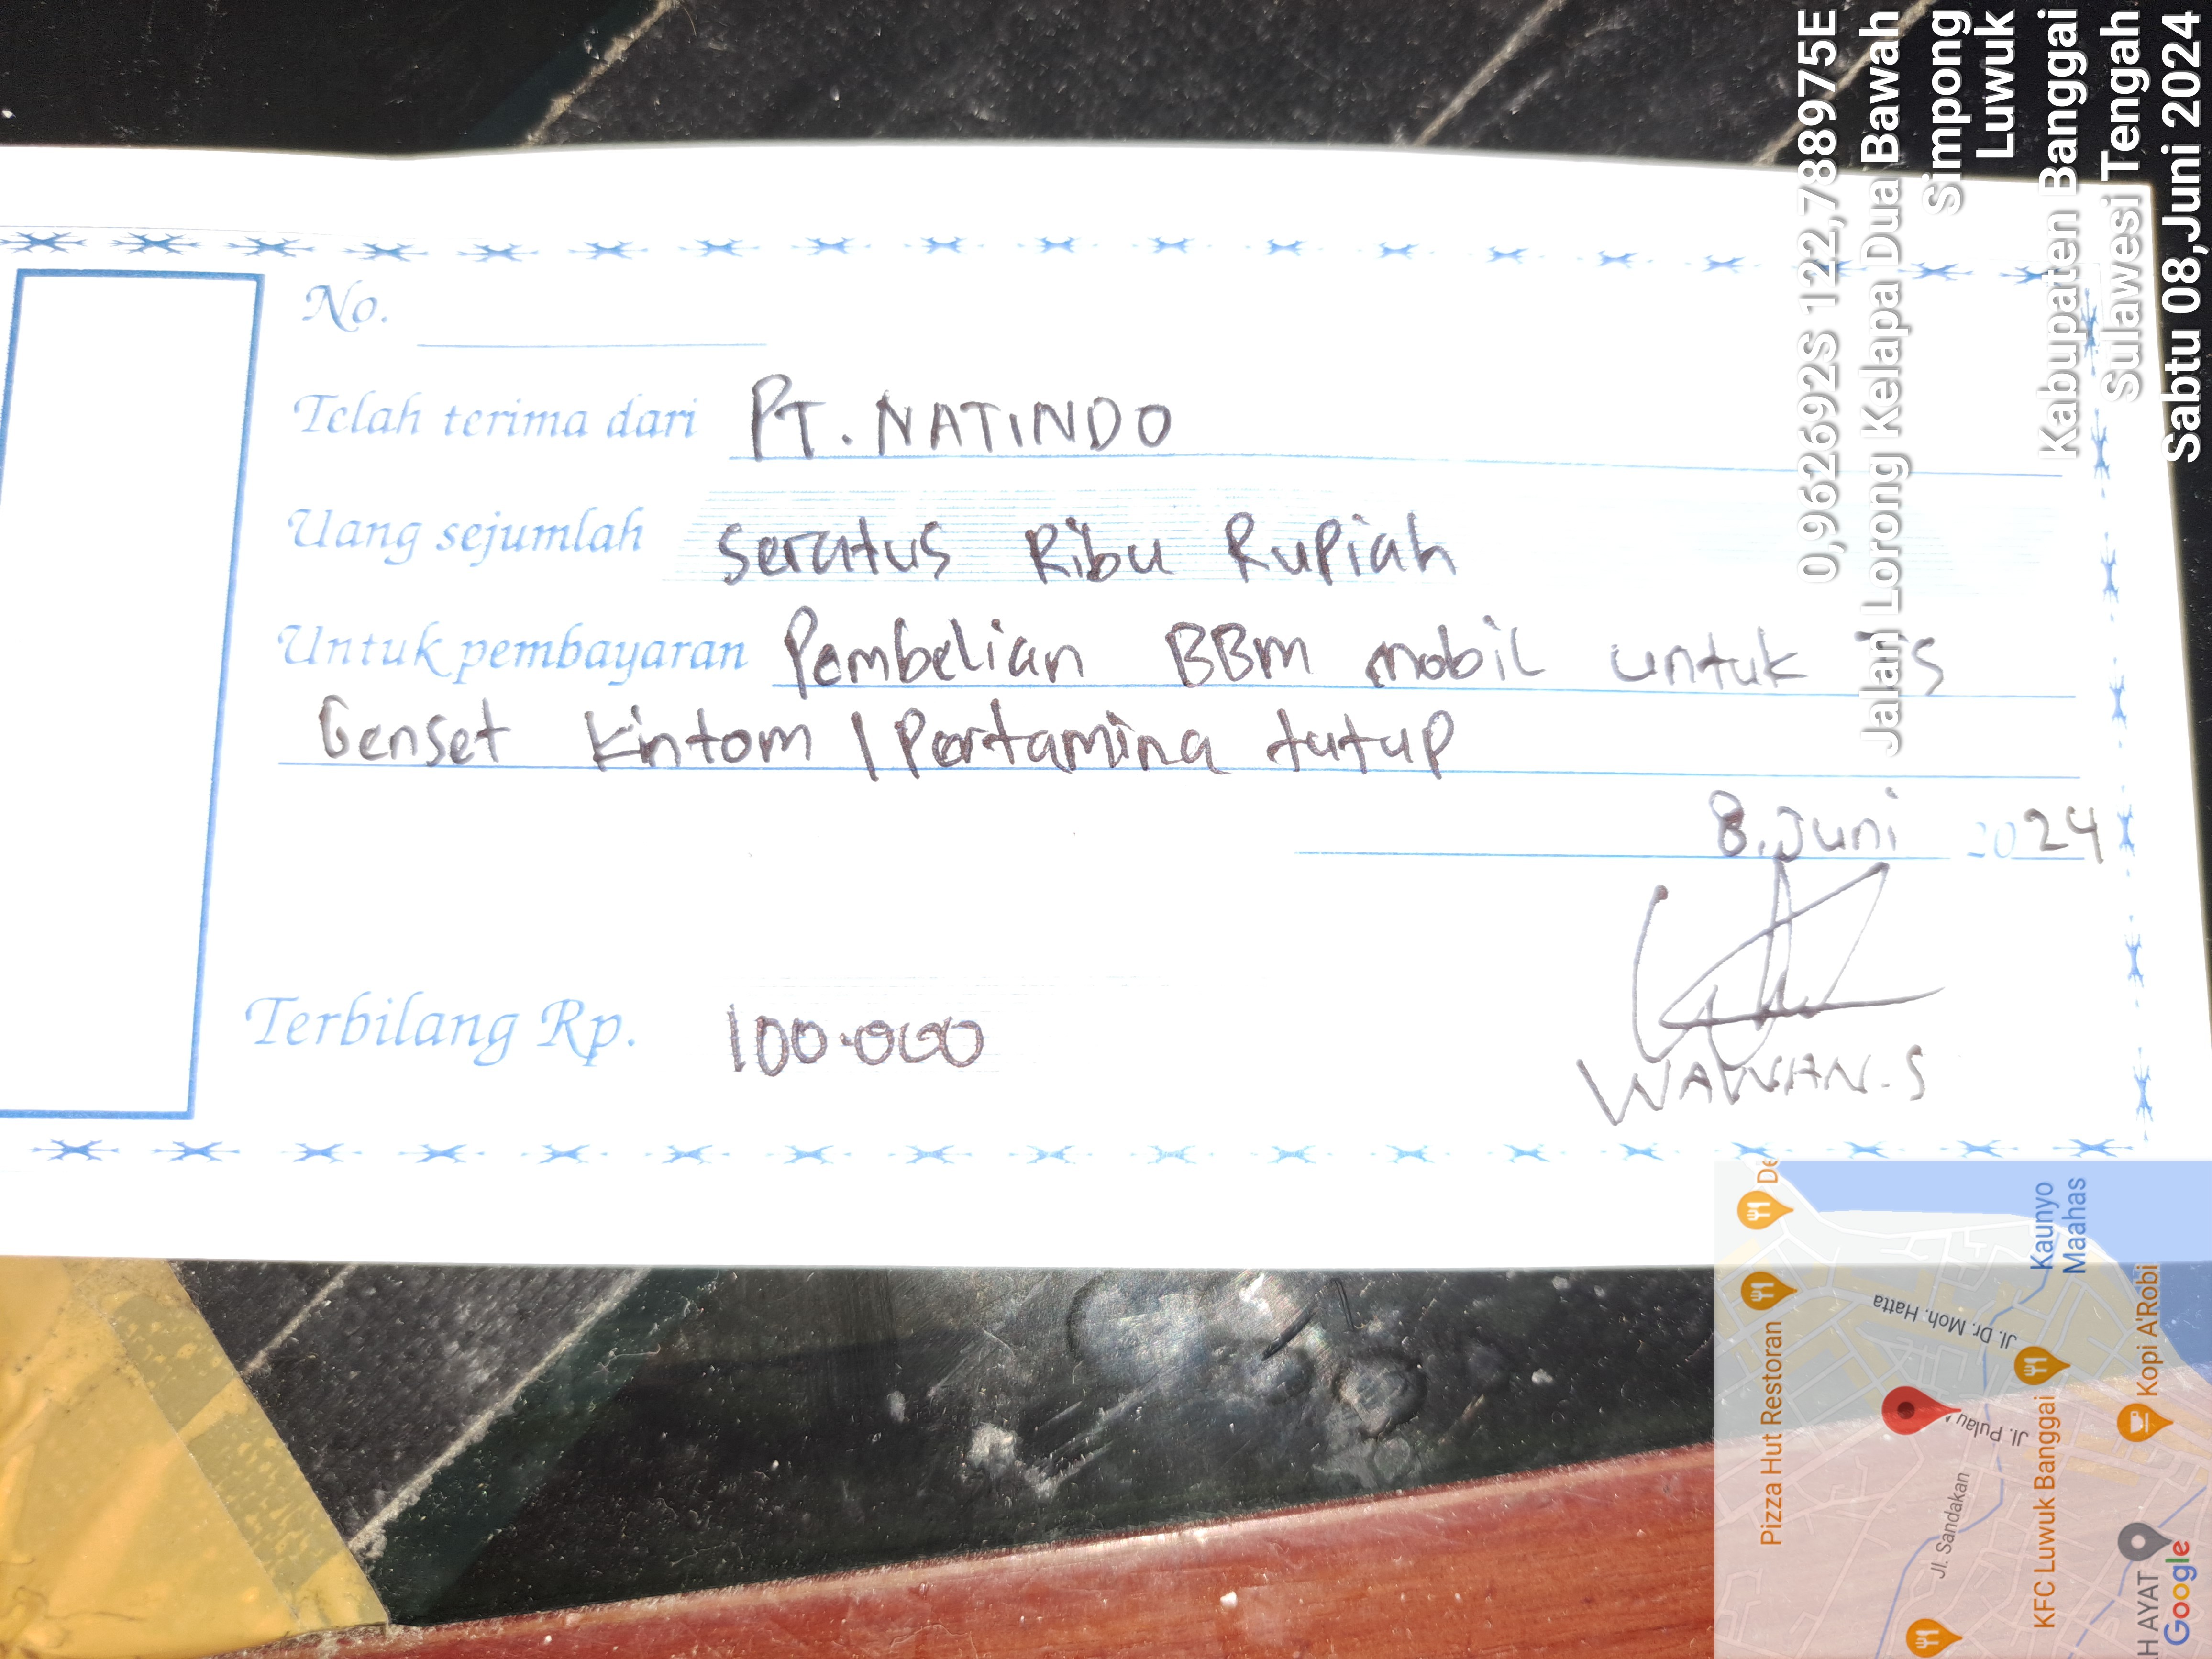 No.
Telah terima dari PT. NATINDO
Uang sejumlah Seratus Ribu Rupiah
Untuk pembayaran Pembelian BBM mobil untuk is
Genset Kintom / Pertamina tutup
8. Juni 2024
Terbilang Rp. 100.000
WAWAN. S
0,962692S 122,788975E
Jalan Lorong Kelapa Dua Bawah
Simpong
Luwuk
Kabupaten Banggai
Sulawesi Tengah
Sabtu 08,Juni 2024
De
Pizza Hut Restoran
Kaunyo
Maahas
Jl. Dr. Moh. Hatta
Jl. Pulau
Jl. Sandakan
KFC Luwuk Banggai
Kopi A'Robi
H AYAT
Google